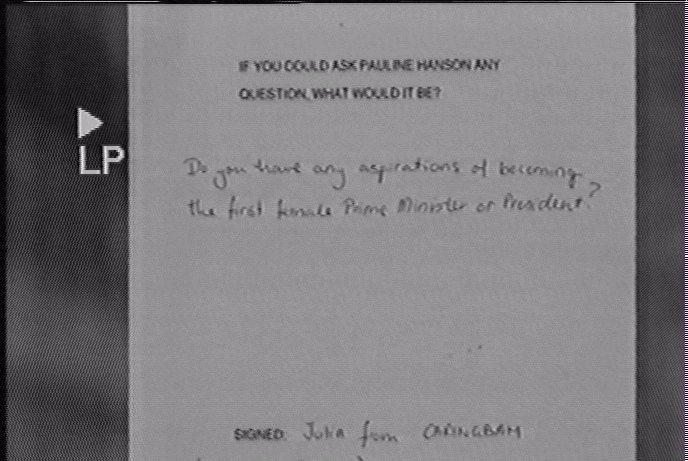 IF YOU COULD ASK PAULINE HANSON ANY
QUESTION, WHAT WOULD IT BE?
LP
Do you have any aspirations of becoming
the first female Prime Minister or President?
SIGNED: Julia from CARINGBAH